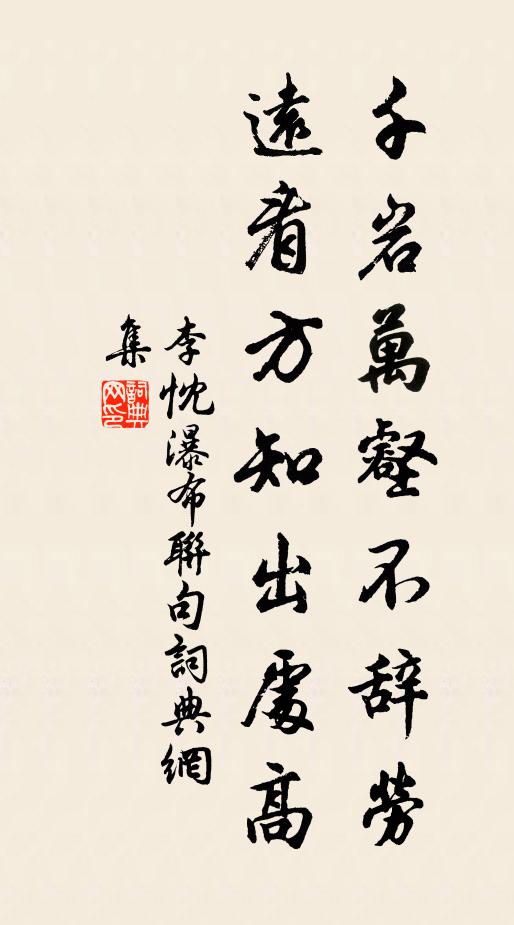 千岩萬壑不辞勞
遠看方知出處高
李忱瀑布聯句詞典網
集
詞典
网印